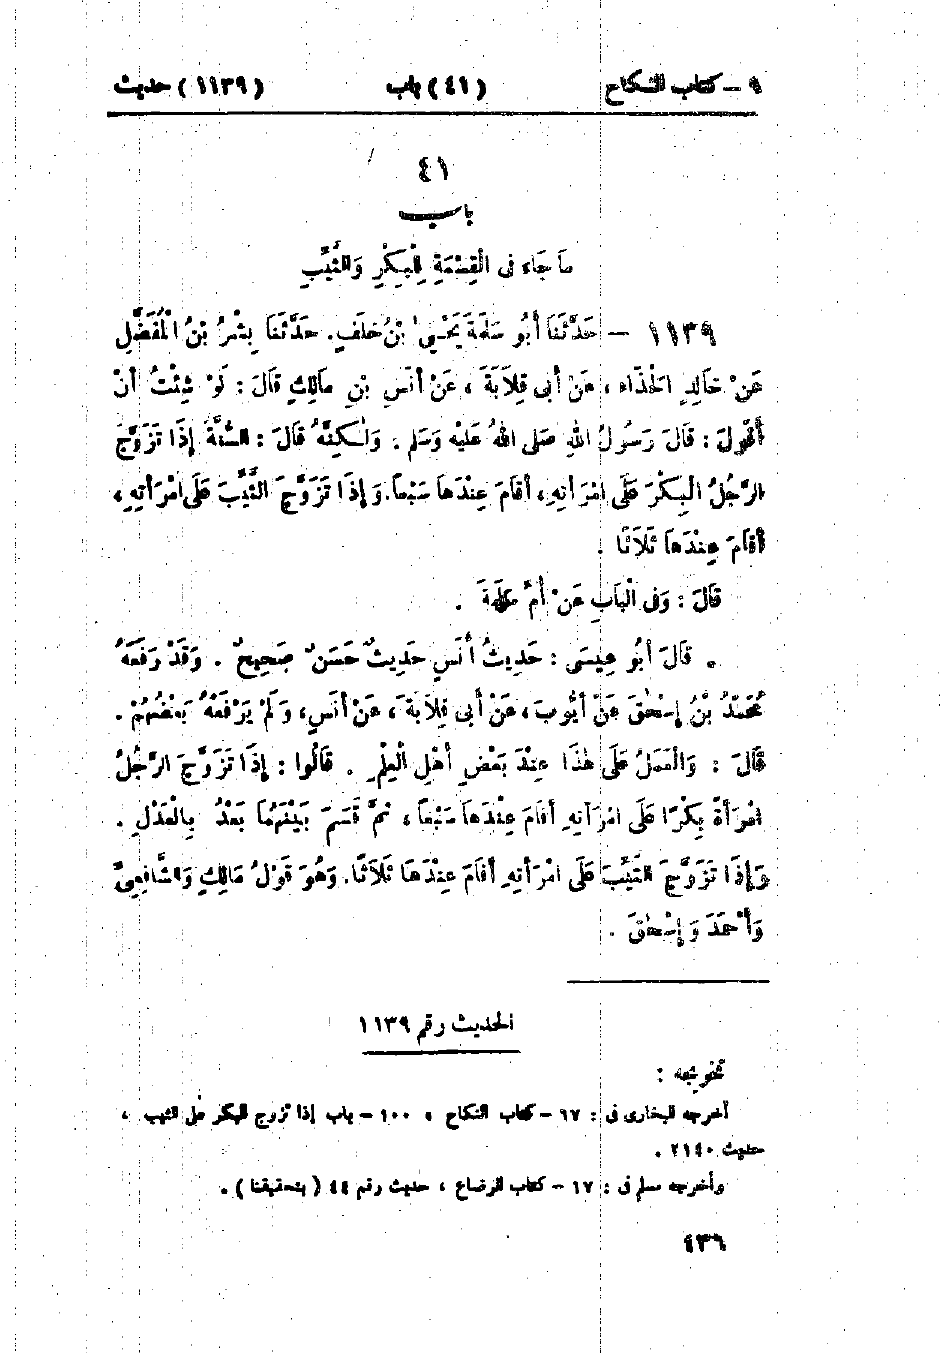 ٩ – كتاب النكاح (٤١) باب (١١٣٩) حديث
٤١
باب
مَا جَاءَ فِى الْقِسْمَةِ لِلْبِكْرِ وَالثَّيِّبِ
١١٣٩ – حَدَّثَنَا أَبُو سَلَمَةَ يَحْيىٰ بْنُ خَلَفٍ. حَدَّثَنَا بِشْرُ بْنُ الْمُفَضَّلِ
عَنْ خَالِدٍ الْحَذَّاءِ، عَنْ أَبِى قِلَابَةَ، عَنْ أَنَسِ بْنِ مَالِكٍ قَالَ: لَوْ شِئْتُ أَنْ
أَقُولَ: قَالَ رَسُولُ اللهِ صَلى اللهُ عَلَيْهِ وَسَلم. وَلٰكِنَّهُ قَالَ: السُّنَّةُ إِذَا تَزَوَّجَ
الرَّجُلُ الْبِكْرَ عَلَى امْرَأَتِهِ، أَقَامَ عِنْدَهَا سَبْعاً. وَإِذَا تَزَوَّجَ الثَّيِّبَ عَلَى امْرَأَتِهِ،
أَقَامَ عِنْدَهَا ثَلَاثًا.
قَالَ: وَفِى الْبَابِ عَنْ أُمِّ سَلَمَةَ.
• قَالَ أَبُو عِيسَى: حَدِيثُ أَنَسٍ حَدِيثٌ حَسَنٌ صَحِيحٌ. وَقَدْ رَفَعَهُ
مُحَمَّدُ بْنُ إِسْحٰقَ عَنْ أَيُّوبَ، عَنْ أَبِى قِلَابَةَ، عَنْ أَنَسٍ، وَلَمْ يَرْفَعْهُ بَعْضُهُمْ.
قَالَ: وَالْعَمَلُ عَلَى هٰذَا عِنْدَ بَعْضِ أَهْلِ الْعِلْمِ. قَالُوا: إِذَا تَزَوَّجَ الرَّجُلُ
امْرَأَةً بِكْرًا عَلَى امْرَأَتِهِ أَقَامَ عِنْدَهَا سَبْعاً، ثُمَّ قَسَمَ بَيْنَهُمَا بَعْدُ بِالْعَدْلِ.
وَإِذَا تَزَوَّجَ الثَّيِّبَ عَلَى امْرَأَتِهِ أَقَامَ عِنْدَهَا ثَلَاثًا. وَهُوَ قَوْلُ مَالِكٍ وَالشَّافِعِىِّ
وَأَحْمَدَ وَإِسْحٰقَ.
الحديث رقم ١١٣٩
تخريجه:
أخرجه البخارى فى: ٦٧ – كتاب النكاح، ١٠٠ – باب إذا تزوج البكر على الثيب،
حديث ٢١٤٠.
وأخرجه مسلم فى: ١٧ – كتاب الرضاع، حديث رقم ٤٤ (بتحقيقنا).
٤٣٦